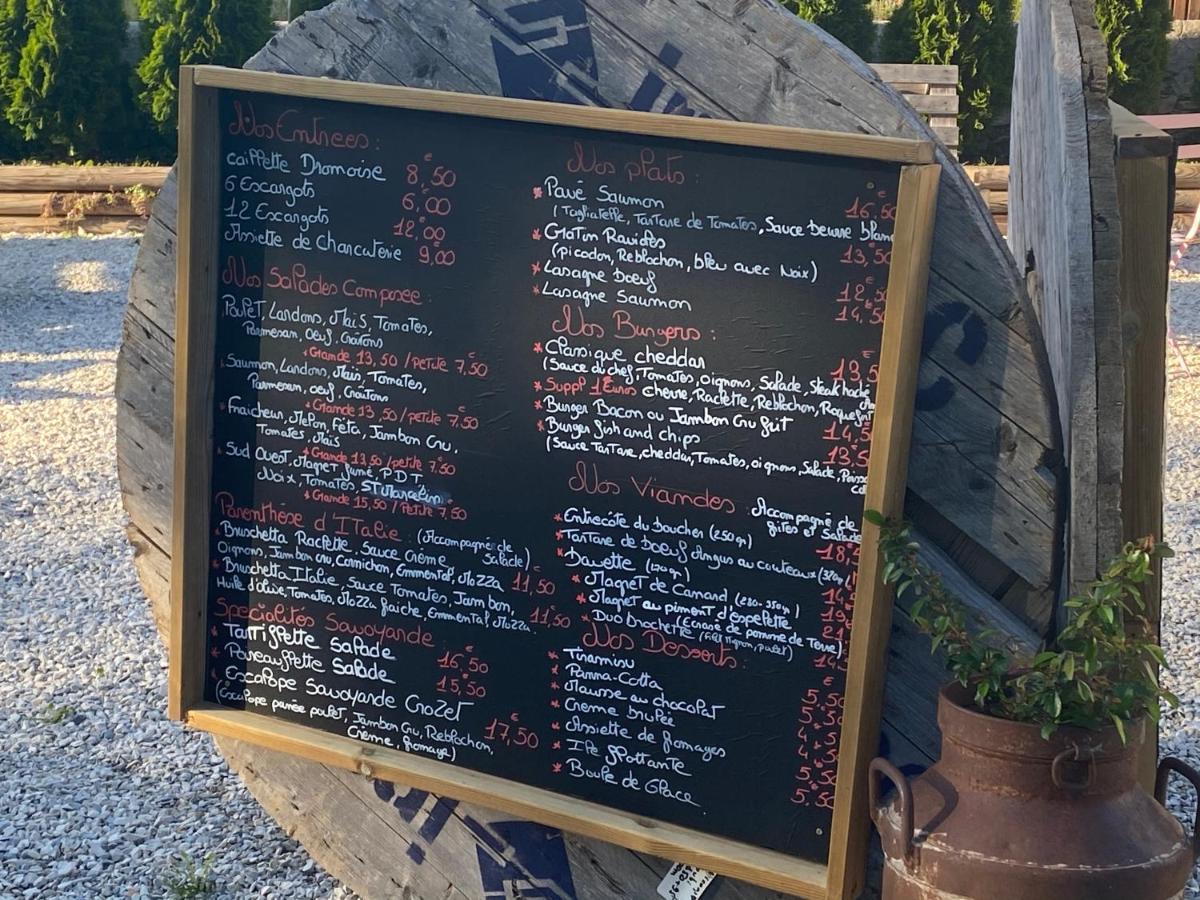 Nos Entrees :
caillette Dromoise 8,50€
6 Escargots 6,00
12 Escargots 12,00
Assiette de Charcuterie 9,00
Nos Salades Composee :
Poulet, Lardons, Maïs, Tomates,
Parmesan, Oeuf, Croûtons
* Grande 13,50 / petite 7,50
Saumon, Lardons, Maïs, Tomates,
Parmesan, oeuf, Croûtons
* Grande 13,50 / petite 7,50
* Fraicheur, Melon, Féta, Jambon Cru,
Tomates, Maïs
* Grande 13,50 / petite 7,50
* Sud Ouest, Magret fumé, P.D.T,
Noix, Tomates, ST Marcellin
* Grande 15,50 / Petite 7,50
Parenthèse d'Italie : (Accompagnée de Salade)
* Bruschetta Raclette, Sauce Crème
Oignons, Jambon cru, Cornichon, Emmental, Mozza 11,50€
* Bruschetta Italie, Sauce Tomates, Jambon,
Huile d'Olive, Tomates, Mozza fraiche, Emmental, Mozza. 11,50€
Specialités Savoyarde
* Tartiflette Salade 16,50€
* Poireauflette Salade 15,50
* Escalope Savoyarde Crozet
(Escalope panée poulet, Jambon Cru, Reblochon, 17,50€
Crème, fromage)
Nos plats :
* Pavé Saumon 16,50
(Tagliatelle, Tartare de Tomates, Sauce beurre blanc
* Gratin Ravioles 13,50
(picodon, Reblochon, bleu avec Noix)
* Lasagne boeuf 12,50
* Lasagne Saumon 14,50
Nos Burgers :
* Classique cheddar 13,5
(Sauce du chef, Tomates, oignons, Salade, Steak haché
* Suppl 1 Euros chèvre, Raclette, Reblochon, Roquefort
* Burger Bacon ou Jambon Cru grit 14,5
* Burger fish and chips 13,5
(Sauce Tartare, cheddar, Tomates, oignons, Salade, Poiss
Nos Viandes : Accompagné de
frites et Salade
* Entrecôte du boucher (250gr) 18,
* Tartare de boeuf Angus au couteaux
* Bavette
* Magret de Canard (280-350gr)
* Magret au piment d'espelette
(Ecrasé de pomme de Terre)
* Duo brochette (Filet Mignon, poulet)
Nos Desserts :
* Tiramisu 5,50
* Panna-Cotta
* Mousse au chocolat
* Crème Brulée
* Assiette de fromages
* Ile flottante
* Boule de Glace